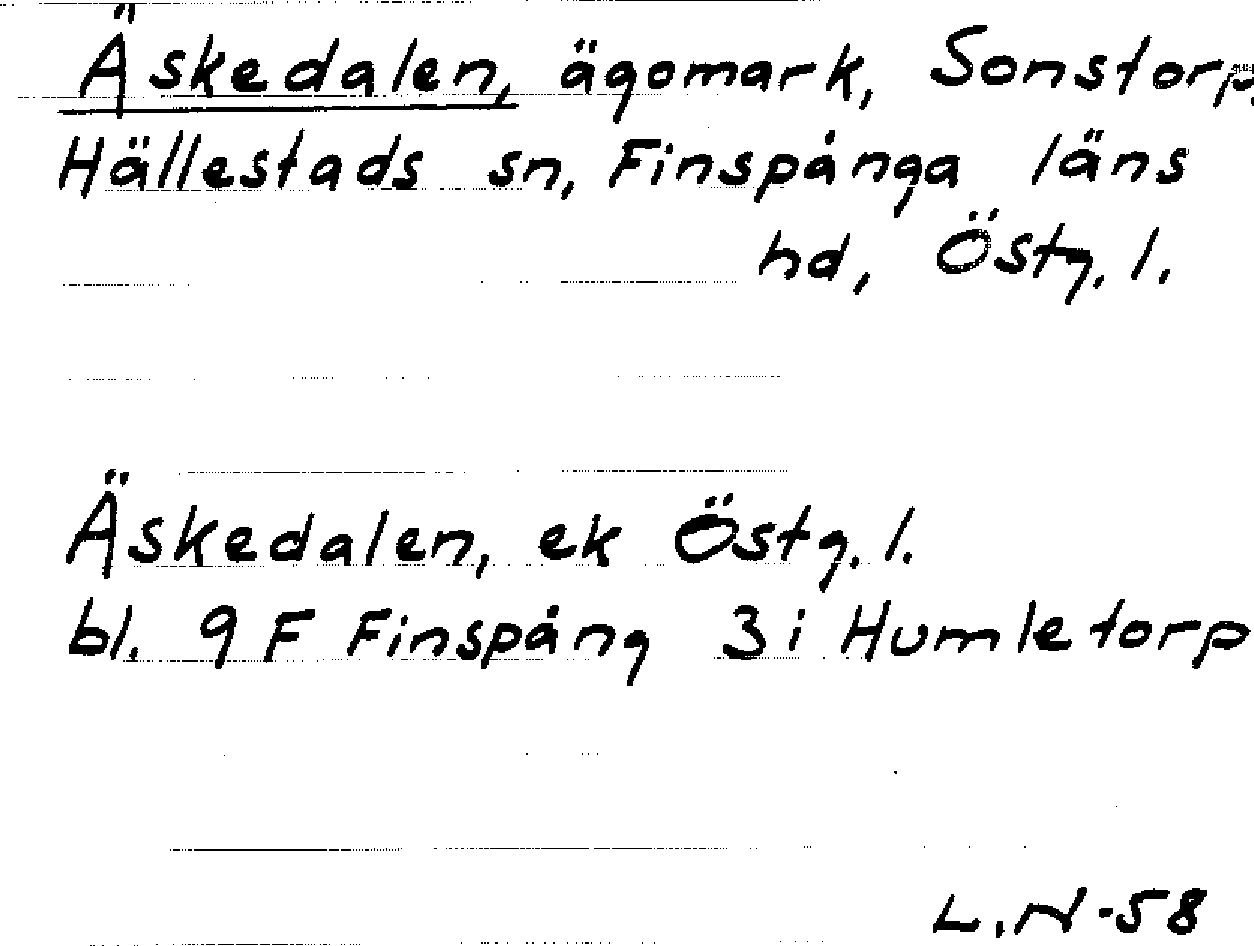 Äskedalen, ägomark, Sonstorp,
Hällestads sn, Finspånga läns
hd, Östg. l.
Äskedalen, ek Östg. l.
bl. 9 F Finspång 3 i Humletorp
L.N-58